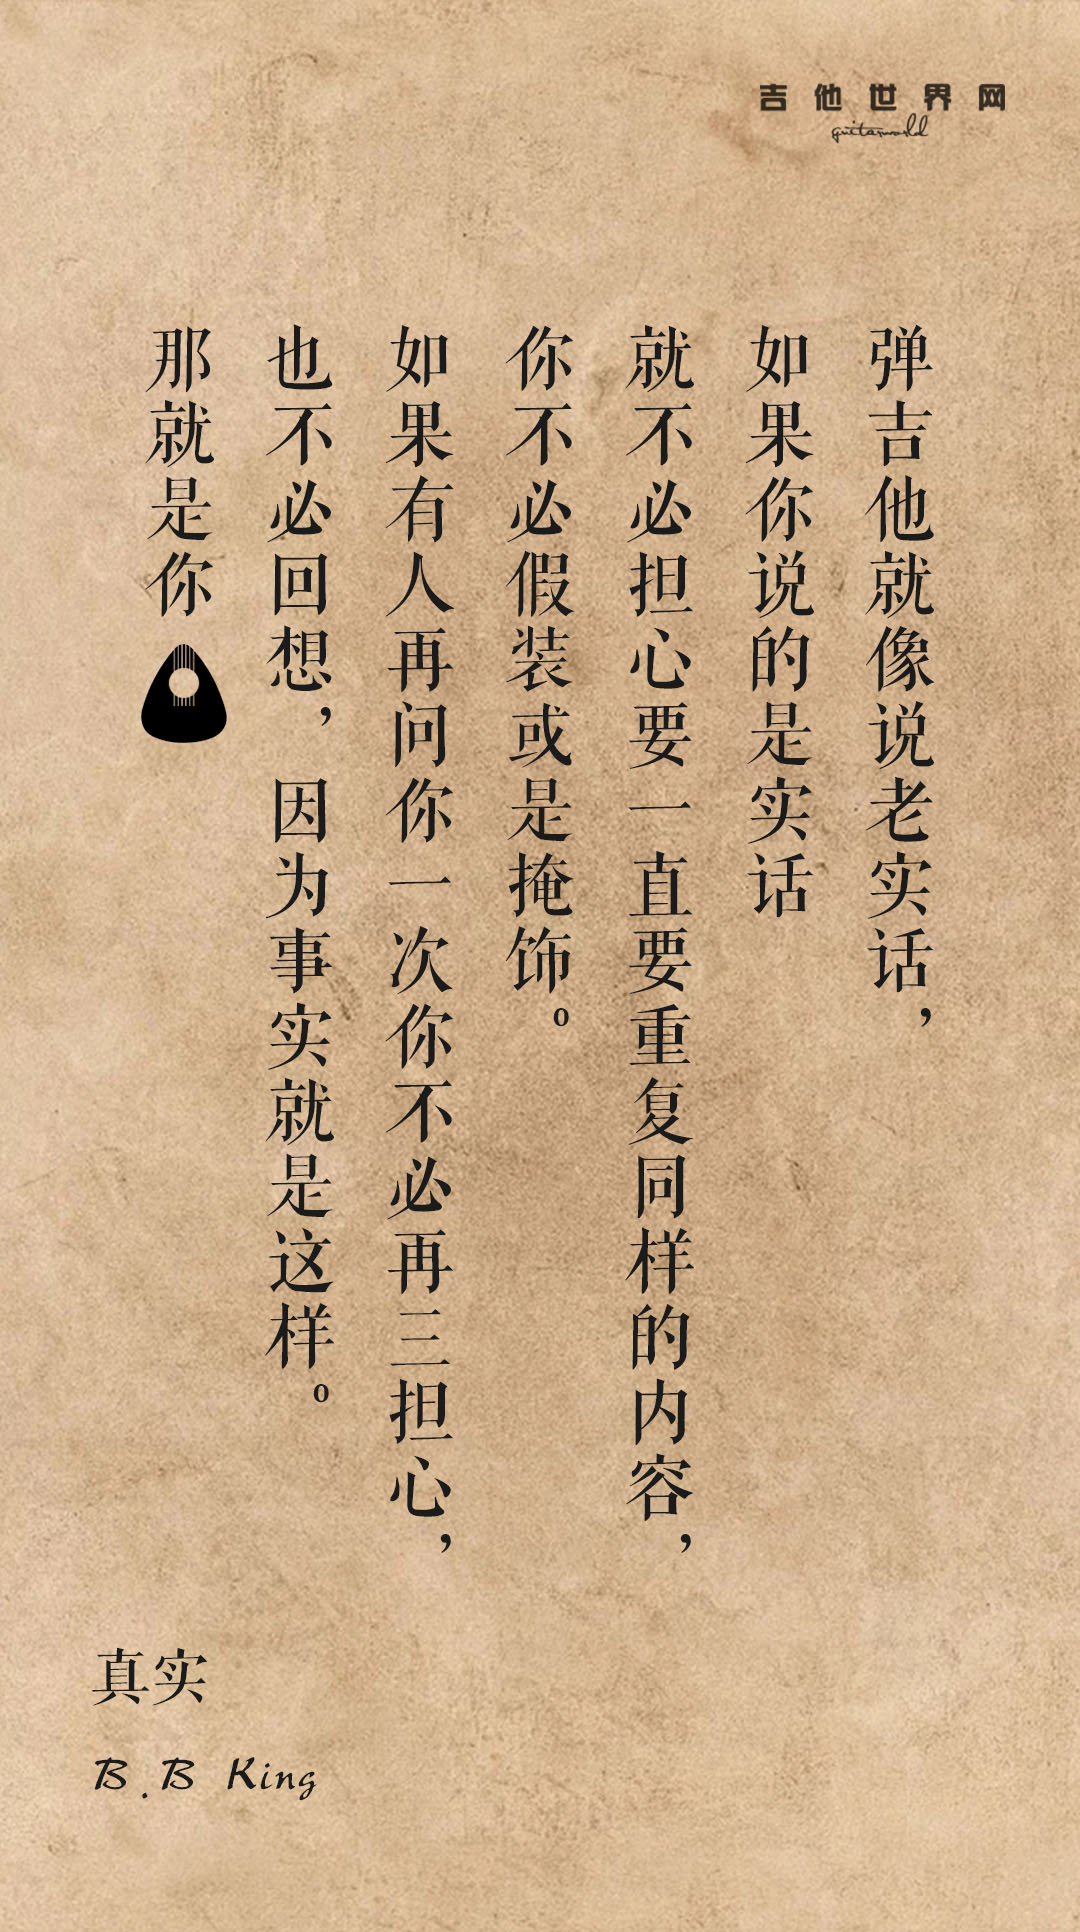 吉他世界网
guitarworld
弹吉他就像说老实话，
如果你说的是实话
就不必担心要一直要重复同样的内容，
你不必假装或是掩饰。
如果有人再问你一次你不必再三担心，
也不必回想，因为事实就是这样。
那就是你
真实
B.B King